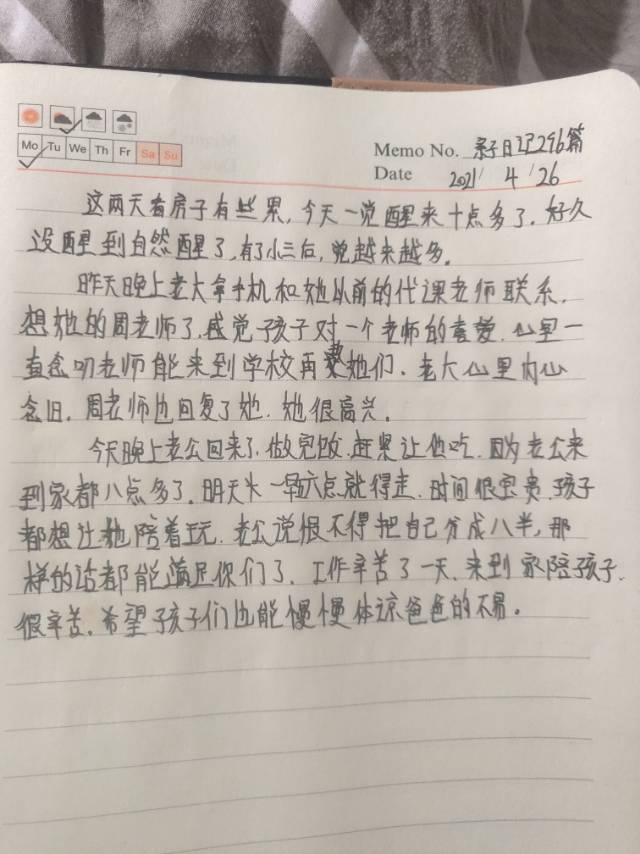 Mo Tu We Th Fr Sa Su
Memo No. 亲子日记296篇
Date 2021/ 4 / 26
这两天看房子有些累,今天一觉醒来十点多了.好久
没醒到自然醒了,有了小三后,觉越来越少。
昨天晚上老大拿手机和她以前的代课老师联系.
想她的周老师了.感觉孩子对一个老师的喜爱.心里一
直念叨老师能来到学校再教她们.老大心里内心
念旧.周老师也回复了她.她很高兴.
今天晚上老公回来了.做完饭.赶紧让他吃.因为老公来
到家都八点多了.明天一早六点就得走.时间很宝贵.孩子
都想让他陪着玩.老公说恨不得把自己分成八半,那
样的话都能满足你们了.工作辛苦了一天.来到家陪孩子.
很辛苦.希望孩子们也能慢慢体谅爸爸的不易。